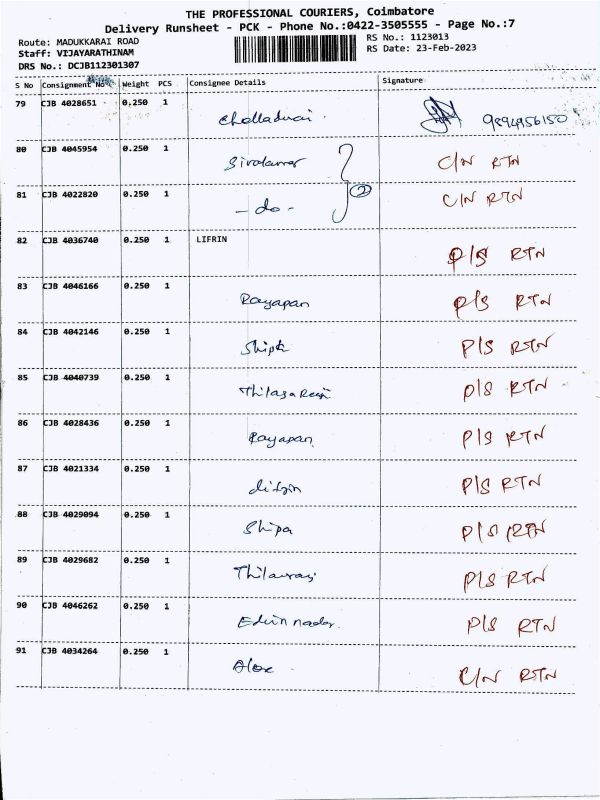 THE PROFESSIONAL COURIERS, Coimbatore
Delivery Runsheet - PCK - Phone No.:0422-3505555 - Page No.:7
Route: MADUKKARAI ROAD
Staff: VIJAYARATHINAM
DRS No.: DCJB112301307
RS No.: 1123013
RS Date: 23-Feb-2023
S No Consignment No Weight PCS Consignee Details Signature
79 CJB 4028651 0.250 1 Chelladurai
80 CJB 4045954 0.250 1 C/N RTN
81 CJB 4022820 0.250 1 - do - 2 C/N RTN
82 CJB 4036740 0.250 1 LIFRIN P/S RTN
83 CJB 4046166 0.250 1 Rayapan P/S RTN
84 CJB 4042146 0.250 1 P/S RTN
85 CJB 4040739 0.250 1 P/S RTN
86 CJB 4028436 0.250 1 Rayapan P/S RTN
87 CJB 4021334 0.250 1 P/S RTN
88 CJB 4029094 0.250 1 Shipa P/S RTN
89 CJB 4029682 0.250 1 P/S RTN
90 CJB 4046262 0.250 1 Edwin P/S RTN
91 CJB 4034264 0.250 1 Alex C/N RTN